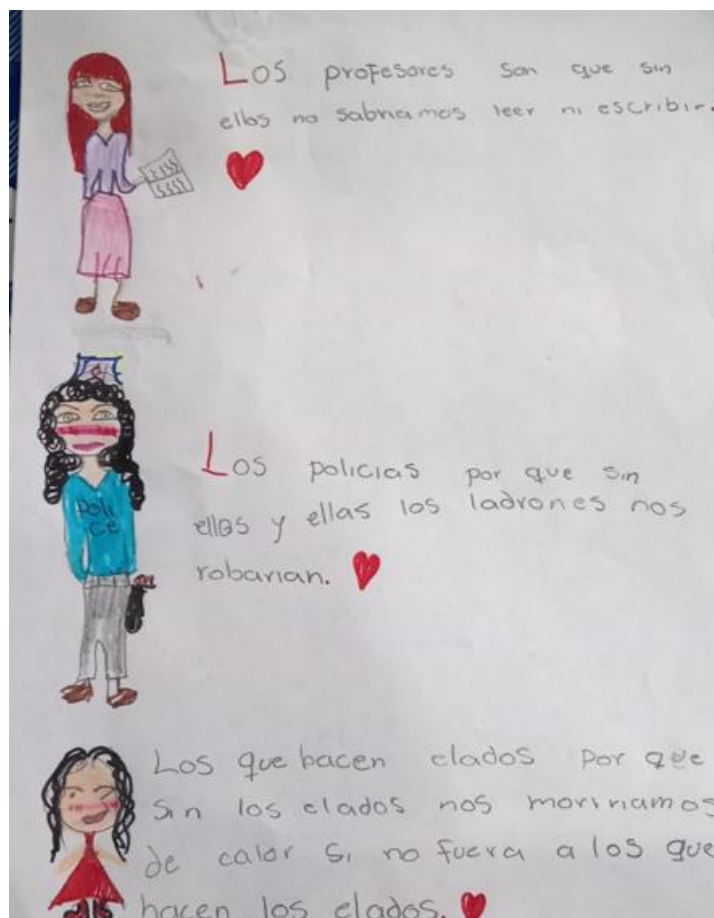 Los profesores son que sin
ellos no sabriamos leer ni escribir.
Los policias por que sin
ellos y ellas los ladrones nos
robarian.
Poli
CE
Los que hacen elados por que
Sin los elados nos moririamos
de calor si no fuera a los que
hacen los elados.